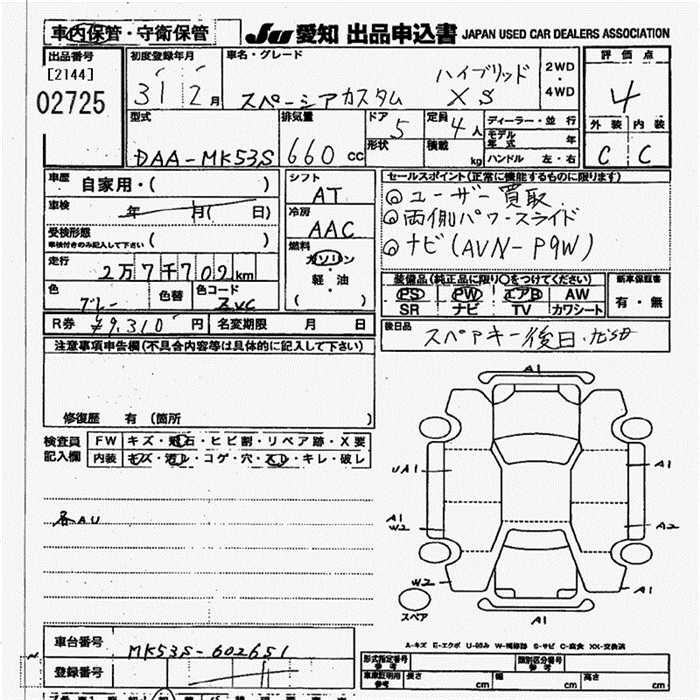 車内保管・守衛保管 JU 愛知 出品申込書 JAPAN USED CAR DEALERS ASSOCIATION
出品番号
[2144]
02725
初度登録年月
31 2月
車名・グレード
スペーシアカスタム
ハイブリッド
XS
2WD
・
4WD
評価点
4
外装 内装
C C
型式
DAA-MK53S
排気量
660cc
ドア 5
形状
定員 4人
積載 kg
ディーラー・並行
モデル年式 年
ハンドル 左・右
車歴 自家用・( )
車検 年 月( 日)
受検形態
車検付きのみ記入して下さい ( )
走行 2万7千702km
色 グレー
色替
色コード ZVC
シフト
AT
冷房
AAC
燃料
ガソリン
・
軽・油
( )
セールスポイント(正常に機能するものに限ります)
◎ユーザー買取
◎両側パワースライド
◎ナビ(AVN-P9W)
装備品(純正品に限り○をつけてください)
PS PW エアB AW
SR ナビ TV カワシート
新車保証書
有・無
R券 ¥9,310円 名変期限 月 日
後日品
スペアキー後日
注意事項申告欄(不具合内容等は具体的に記入して下さい)
修復歴 有(箇所 )
検査員
記入欄
FW キズ・飛石・ヒビ割・リペア跡・X要
内装 キズ・汚レ・コゲ・穴・スレ・キレ・破レ
各AU
A1
UA1
A1
A1
W2
A2
W2
A1
A1
スペア
A-キズ E-エクボ U-凹み W-補修跡 S-サビ C-腐食 XX-交換済
車台番号 MK53S-602651
登録番号
形式指定番号
参考
類別区分番号
参考
車庫証明用
参考
長さ cm 幅 cm 高さ cm